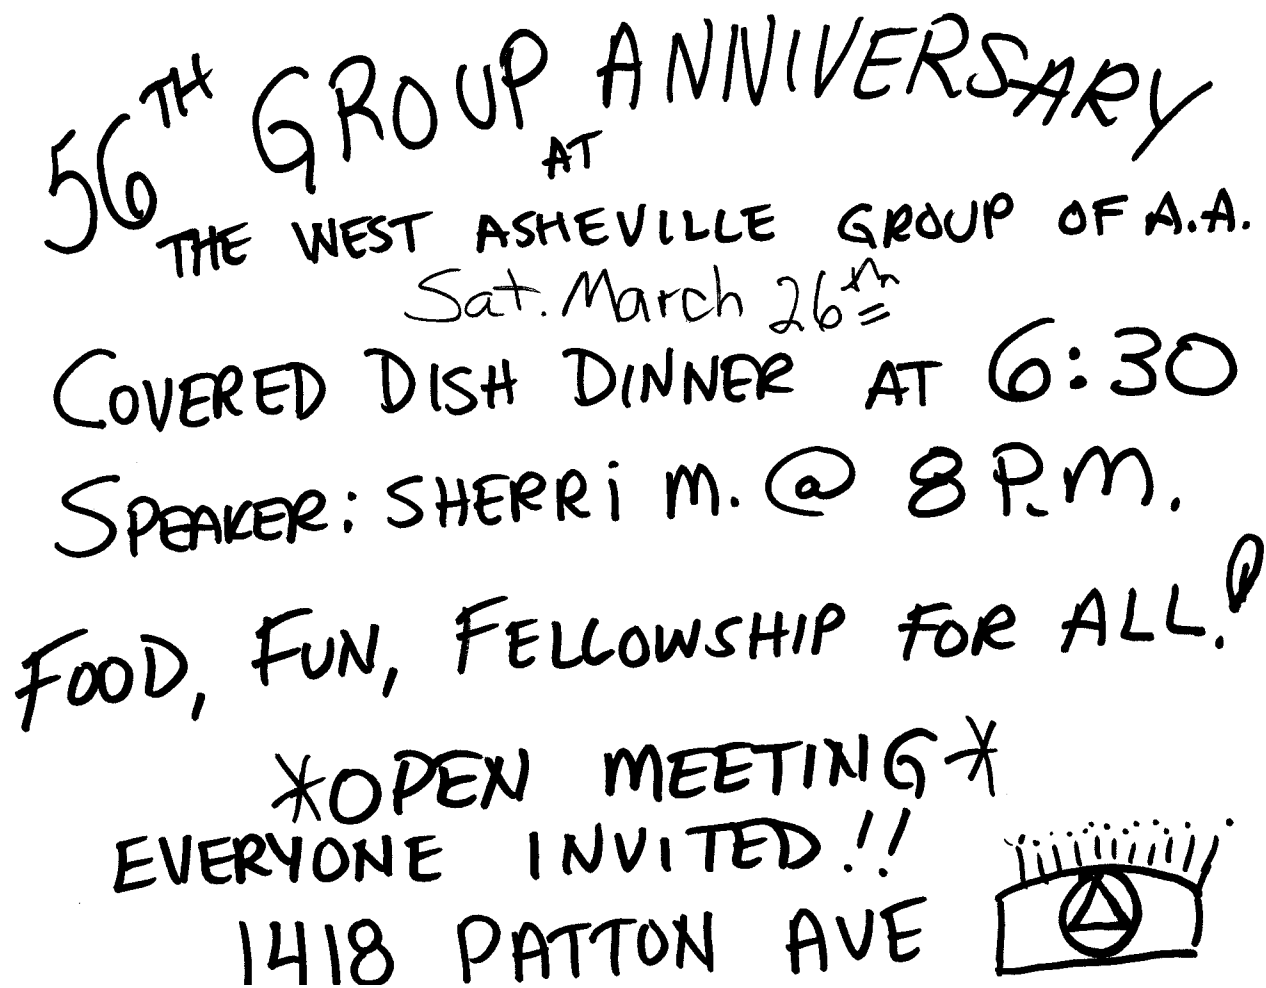 56TH GROUP ANNIVERSARY
AT
THE WEST ASHEVILLE GROUP OF A.A.
Sat. March 26th
COVERED DISH DINNER AT 6:30
SPEAKER: SHERRi M. @ 8 P.M.
FOOD, FUN, FELLOWSHIP FOR ALL!
*OPEN MEETING*
EVERYONE INVITED!!
1418 PATTON AVE